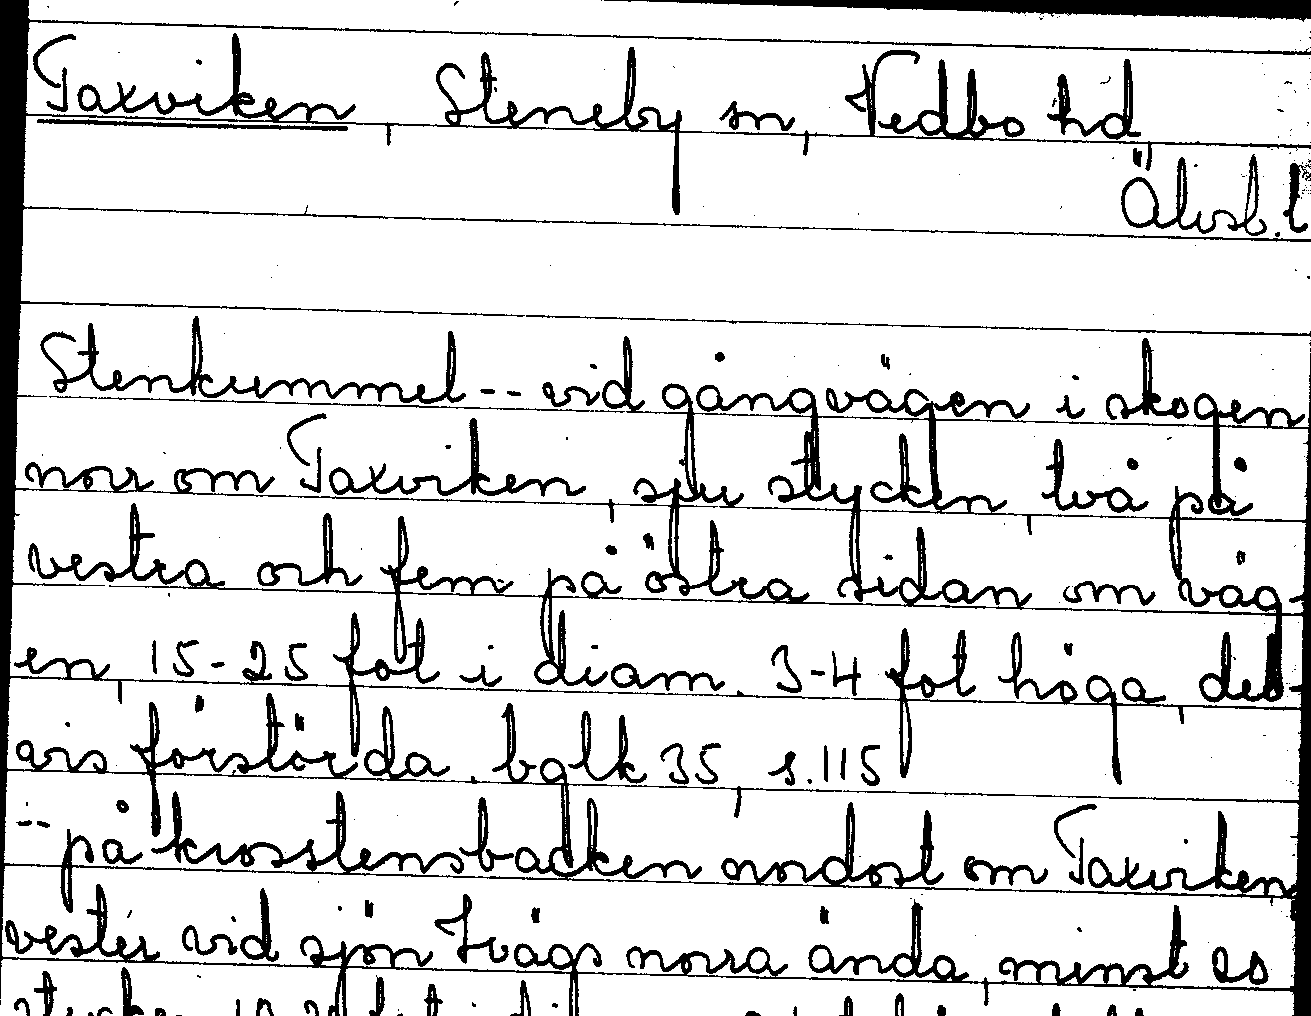 Taxviken, Steneby sn, Vedbo hd
Älvsb. l
Stenkummel -- vid gångvägen i skogen
norr om Taxviken, sju stycken, två på
vestra och fem på östra sidan om väg-
en, 15-25 fot i diam. 3-4 fot höga, del-
vis förstörda. balk 35, s. 115
-- på krosstensbacken nordost om Taxviken
vester vid sjön Ivägs norra ända, minst 20
stycken